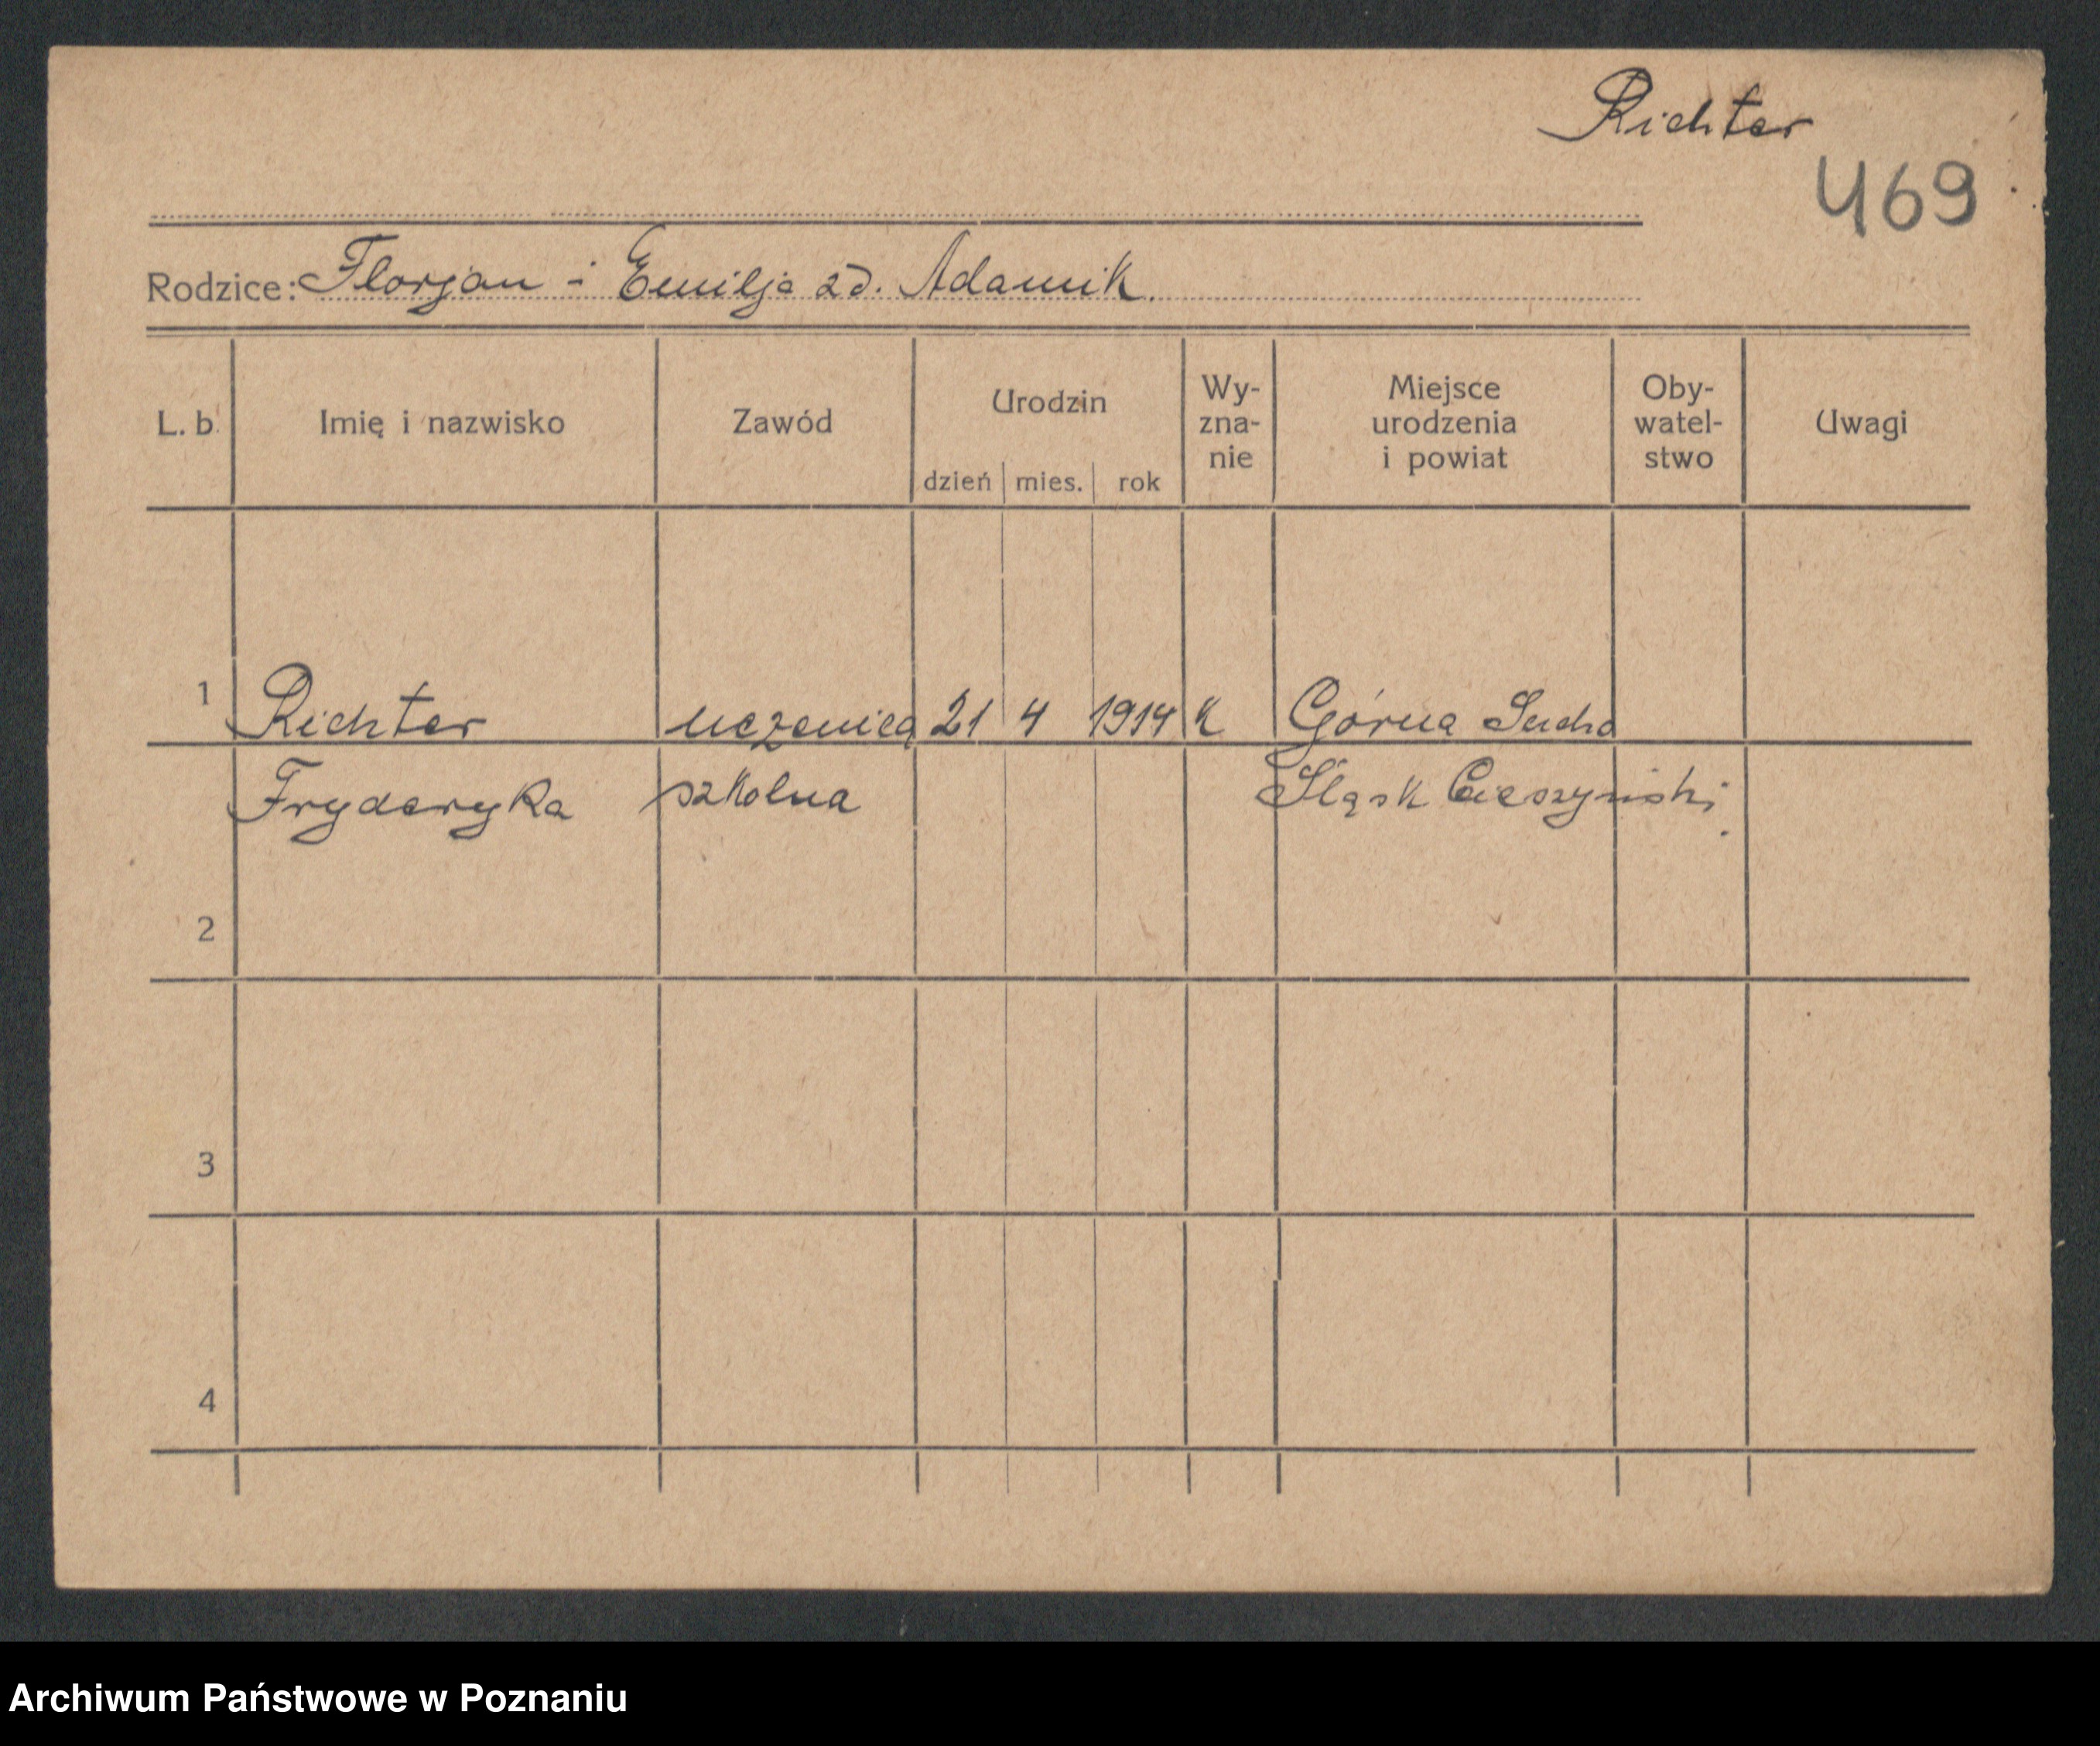 Richter
469
Rodzice: Florjan i Emilja zd. Adamik.
L. b. Imię i nazwisko Zawód Urodzin dzień mies. rok Wy- zna- nie Miejsce urodzenia i powiat Oby- watel- stwo Uwagi
1 Richter uczenica 21 4 1914 k Górna Sucha
Fryderyka szkolna Śląsk Cieszyński.
2
3
4
Archiwum Państwowe w Poznaniu